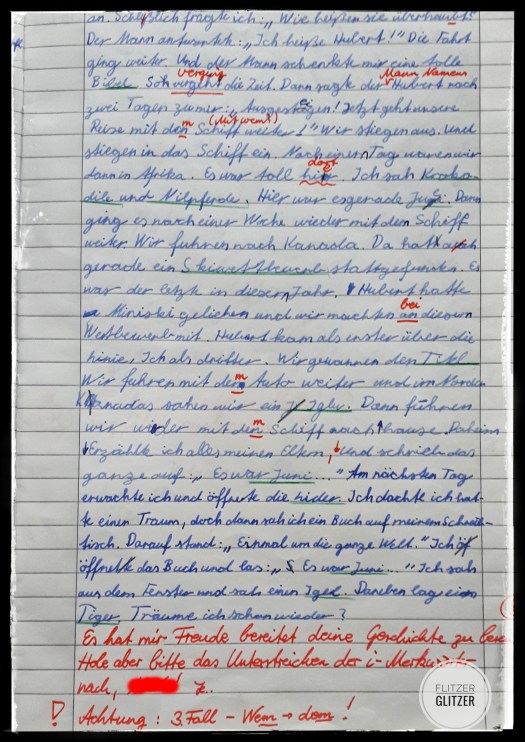 an. Schließlich fragte ich: „Wie heißen sie überhaubt?"
Der Mann antwortete: „Ich heiße Hubert!" Die Fahrt
ging weiter. Und der Mann schenkte mir eine tolle
verging Mann Namens
Bibel. Soh vergeht die Zeit. Dann sagte der Hubert nach
zwei Tagen zu mir: „Ausgestiegen! Jetzt geht unsere
m (Mit wem?)
Reise mit den Schiff weiter!" Wir stiegen aus. Und
stiegen in das Schiff ein. Nach einem Tag waren wir
dort
dann in Afrika. Es war toll hier. Ich sah Kroko-
dile und Nilpferde. Hier war es gerade Juni. Dann
ging es nach einer Woche wieder mit dem Schiff
weiter. Wir fuhren nach Kanada. Da hat auch
gerade ein Skiwettbewerb stattgefunden. Es
war der letzte in diesem Jahr. Hubert hatte
bei
Miniski geliehen und wir machten an diesem
Wettbewerb mit. Hubert kam als erster über die
linie, Ich als dritter. Wir gewannen den Titel
m
Wir fuhren mit den Auto weiter und im Norden
Kanadas sahen wir ein Iglu. Dann fuhren
m
wir wieder mit den Schiff nach hause. Daheim
Erzählte ich alles meinen Eltern, Und schrieb das
ganze auf: „Es war Juni..." Am nächsten Tag
erwachte ich und öffnete die lider. Ich dachte ich hat-
te einen Traum, doch dann sah ich ein Buch auf meinem Schreib-
tisch. Darauf stand: „Einmal um die ganze Welt." Ich
öffnete das Buch und las: „Es war Juni..." Ich sah
aus dem Fenster und sah einen Igel. Daneben lag ein
Tiger. Träume ich schon wieder?
Es hat mir Freude bereitet deine Geschichte zu
Hole aber bitte das Unterstreichen der i-Merkwörter
nach, !
! Achtung: 3. Fall - Wem → dem!
FLITZER
GLITZER